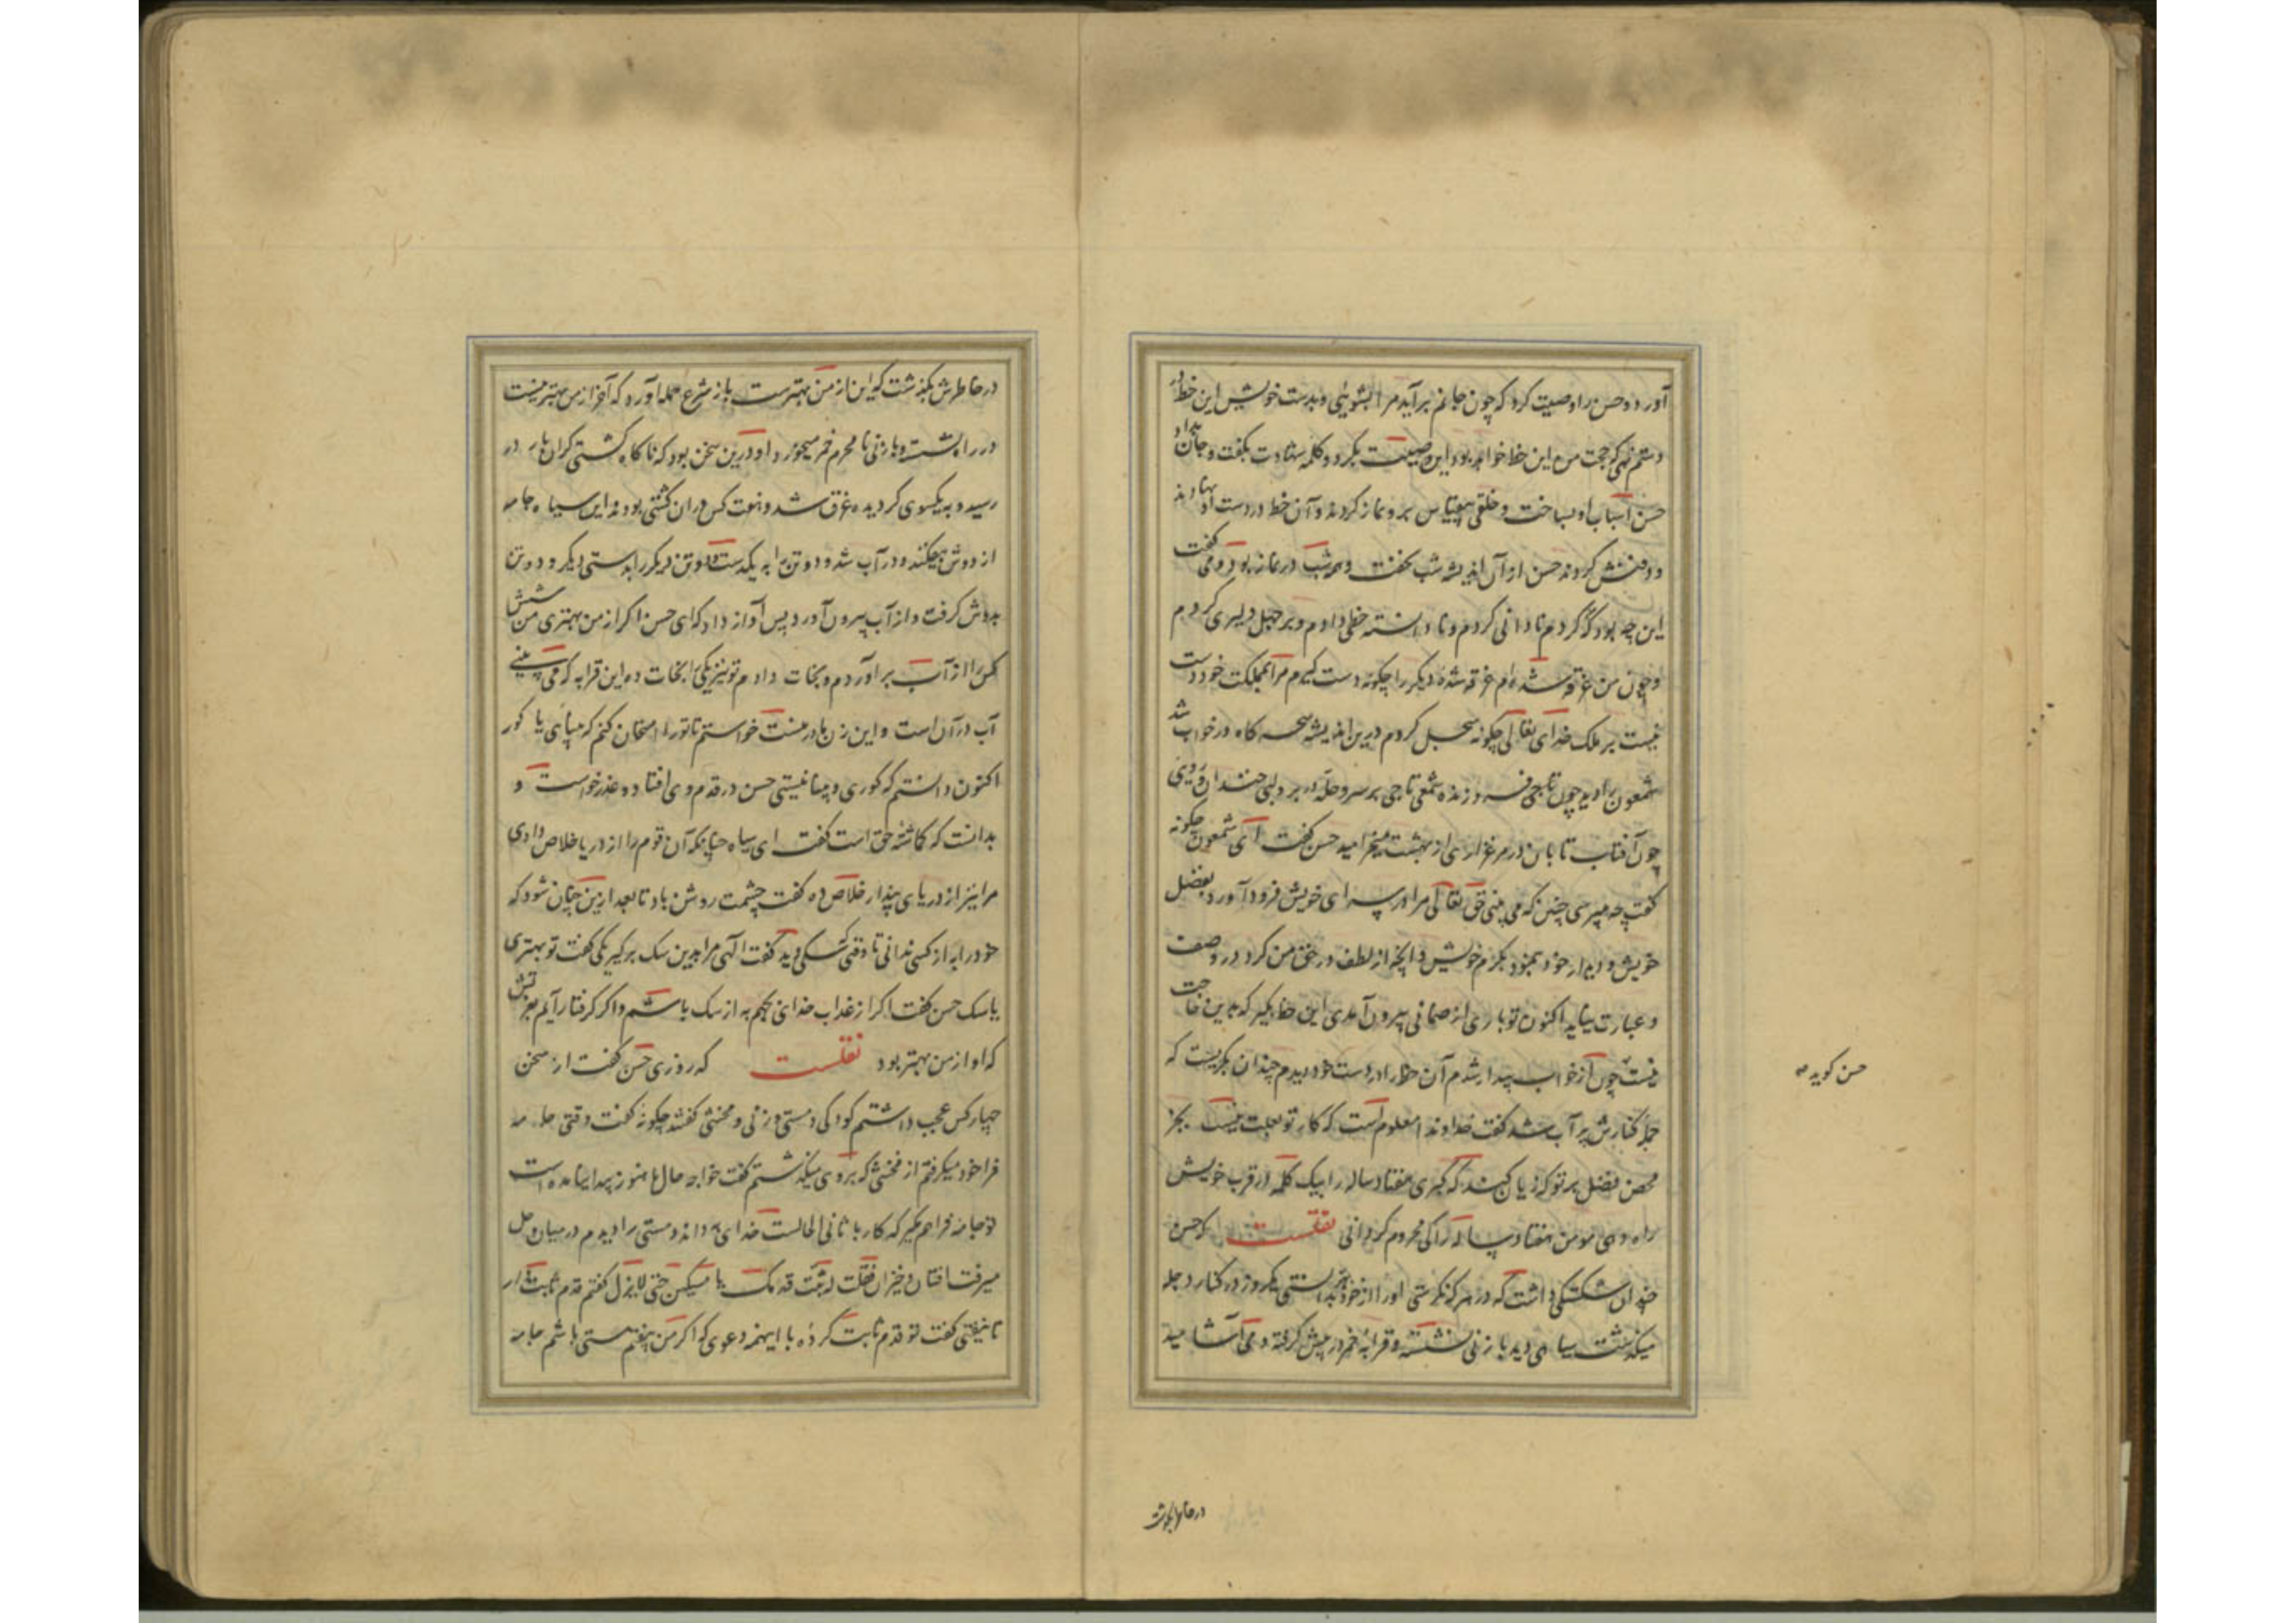 آورد و حسن را وصیت کرد که چون جانم برآید مرا بشویی و بدست خویش این خط در
دستم نهی که حجت من این خط خواهد بود این وصیت بکرد و کلمه شهادت بکفت و جان بداد
حسن اسباب او بساخت و خلقی بر و نماز کردند و آن خط در دست او نهادند
و دفنش کردند حسن از آن اندیشه شب نخفت و همه شب در نماز بود و می کفت
این چه بود که کردم نادانی کردم و نادانسته خطی دادم و بر جهل دلیری کردم
و چون من غرقه شده ام غرقه شده دیکر را چکونه دست کیرم مرا بر مملکت خود دست
نیست بر ملک خدای تعالی چکونه سجل کردم درین اندیشه سحرکاه در خواب شد
شمعون را دید چون تاجی فروزنده شمعی تاجی بر سر و حله در بر و لبی خندان و رویی
چون آفتاب تابان در مرغزاری از بهشت میخرامید حسن کفت ای شمعون چکونه
کفت چه میپرسی چنین که می بینی حق تعالی مرا در سرای خویش فرود آورد بفضل
خویش و دیدار خود بنمود بکرم خویش و آنچه از لطف در حق من کرد در وصف
و عبارت نیاید اکنون تو باری از ضمانی بیرون آمدی این خط بکیر که بدین حاجت
نیست چون از خواب بیدار شدم آن خط را در دست خود دیدم چندان بکریست که
حسن کوید صه
جمله کنارش پر آب شد کفت خداوندا معلوم است که کار تو بعلت نیست بجز
محض فضل بر تو که زیان کند که کبری هفتاد ساله را بیک کلمه در قرب خویش
راه دهی مومن هفتاد ساله را کی محروم کردانی نقلست که حسن
چندان شکستکی داشت که در هر که نکرستی او را از خود بهتر دانستی یکروز در کنار دجله
میکذشت سیاهی دید با زنی نشسته و قرابه خمر در پیش کرفته و می آشامید
در خاطرش بکذشت
در خاطرش بکذشت که این از من بهترست باز شرع حمله آورد که آخر از من بهتر نیست
رسید و به یکسوی کردیده غرق شد و هفت کس در ان کشتی بودند این سیاه جامه
از دوش بیفکند و در آب شد و دو تن را به یکدست و دو تن دیکر را بدستی دیکر و دو تن
بدوش کرفت و از آب بیرون آورد پس آواز داد که ای حسن اکر از من بهتری من شش
کس را از آب برآوردم و نجات دادم تو نیز یکی را نجات ده این قرابه که می بینی
آب در آن است و این زن مادر منست خواستم تا تو را امتحان کنم که بینایی یا کور
اکنون دانستم که کوری و بینا نیستی حسن در قدم وی افتاد و عذر خواست و
بدانست که کماشته حق است کفت ای سیاه چنانکه آن قوم را از دریا خلاص دادی
مرا نیز از دریای پندار خلاص ده کفت چشمت روشن باد تا بعد ازین چنان شود که
خود را به از کسی ندانی تا وقتی سکی دید کفت الهی مرا بدین سک برکیر یکی کفت تو بهتری
یا سک حسن کفت اکر از عذاب خدای بجهم به از سک باشم و اکر کرفتار آیم
که او از من بهتر بود نقلست که روزی حسن کفت از سخن
چهار کس عجب داشتم کودکی و مستی و زنی و مخنثی کفتند چکونه کفت وقتی جامه
فراخود میکرفتم از مخنثی که بر وی میکذشتم کفت خواجه حال ما هنوز پیدا نیامده است
تو جامه فراهم مکیر که کارها ثانی الحالست خدای به داند و مستی را دیدم در میان وحل
میرفت افتان و خیزان فقلت له ثبت قدمک یا مسکین حتی لا تزل کفتم قدم ثابت دار
تا نیفتی کفت تو قدم ثابت کرده با اینهمه دعوی که اکر من بیفتم مستی باشم جامه